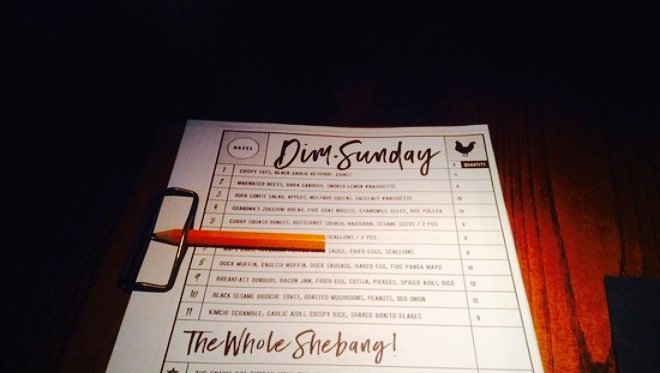 HAZEL
Dim-Sunday
$ QUANTITY
1 CRISPY TOTS, BLACK GARLIC KETCHUP, CHIVES
2 MARINATED BEETS, BABA GANOUSH, SMOKED LEMON VINAIGRETTE
3 DUCK CONFIT SALAD, APPLES, MUSTARD GREENS, HAZELNUT VINAIGRETTE 10
4 GRANDMA'S ZUCCHINI BREAD, FOIE GRAS MOUSSE, CHAMOMILE GELEE, BEE POLLEN 14
5 CURRY SQUASH DONUTS, BUTTERNUT SQUASH, VADOUVAN, SESAME SEEDS / 2 PCS 6
SCALLIONS / 2 PCS
SAUCE, FRIED EGGS, SCALLIONS
8 DUCK MUFFIN, ENGLISH MUFFIN, DUCK SAUSAGE, BAKED EGG, FIRE PANDA MAYO 10
9 BREAKFAST BONBURI, BACON JAM, FRIED EGG, COTIJA, PICKLES, SPICED AIOLI, RICE 13
10 BLACK SESAME BRIOCHE TOAST, ROASTED MUSHROOMS, PEANUTS, RED ONION 12
11 KIMCHI SCRAMBLE, GARLIC AIOLI, CRISPY RICE, SHAVED BONITO FLAKES 9
The Whole Shebang!